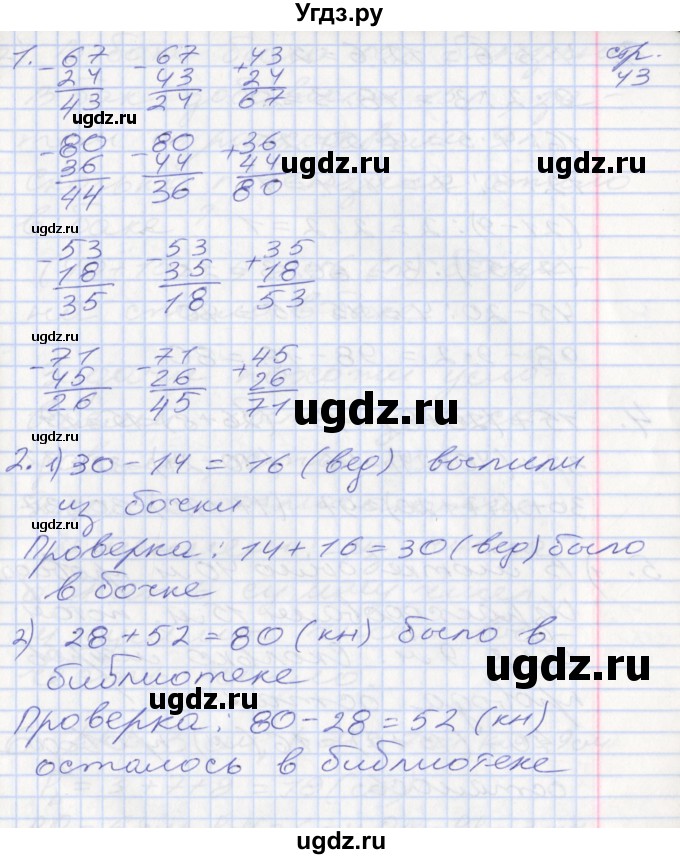 Угдз.ру
1. -67 -67 +43 стр.
24 43 24 43
43 24 67
ugdz.ru
-80 -80 +36
36 44 44
44 36 80
ugdz.ru ugdz.ru
ugdz.ru
-53 -53 +35
18 35 18
35 18 53
ugdz.ru
-71 -71 +45
45 26 26
26 45 71
ugdz.ru
2. 1) 30 - 14 = 16 (вед) вылили
из бочки
ugdz.ru
Проверка: 14 + 16 = 30 (вед) было
в бочке
2) 28 + 52 = 80 (кн) было в
библиотеке
ugdz.ru
ugdz.ru
Проверка: 80 - 28 = 52 (кн)
осталось в библиотеке
ugdz.ru